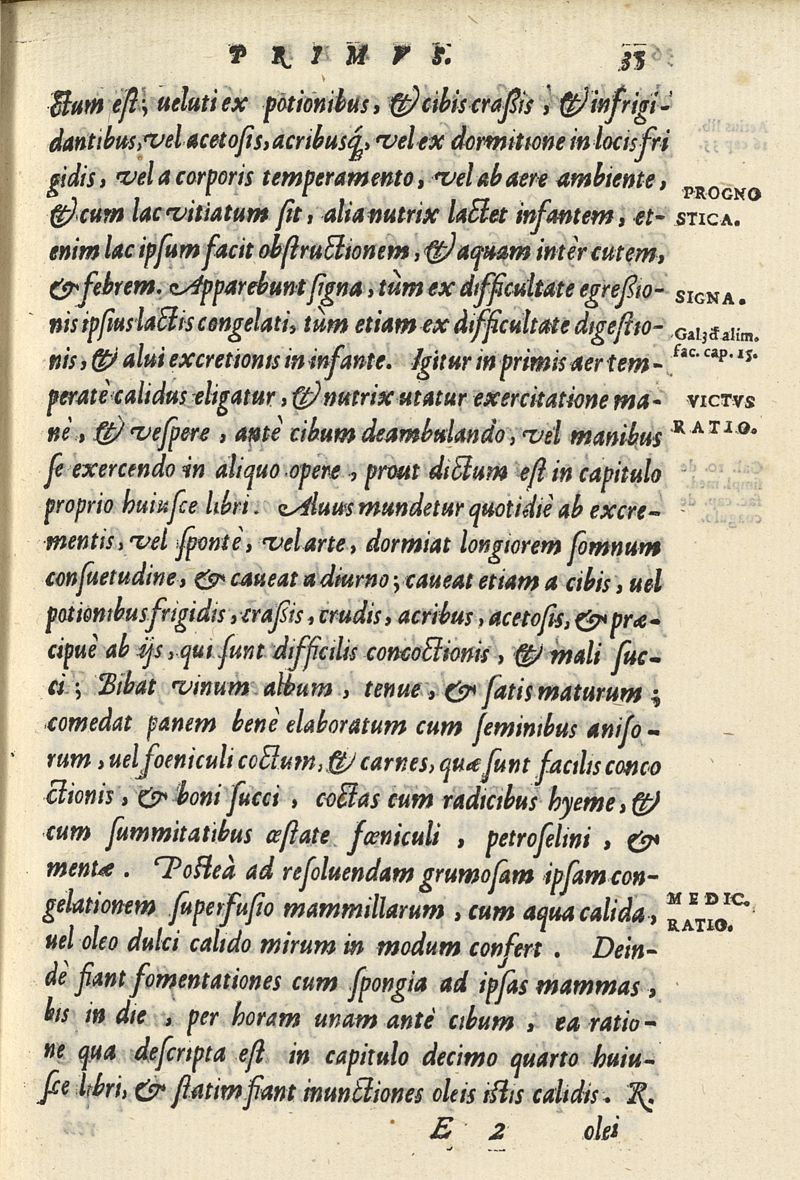 PRIMVS. 35
ctum est; ueluti ex potionibus, & cibis craßis, & infrigi-
dantibus, vel acetosis, acribusq́;, vel ex dormitione in locis fri
gidis, vel a corporis temperamento, vel ab aere ambiente,
& cum lac vitiatum sit, alia nutrix lactet infantem, et-
PROGNO
STICA.
enim lac ipsum facit obstructionem, & aquam intèr cutem,
& febrem. Apparebunt signa, tùm ex difficultate egreßio-
SIGNA.
nis ipsius lactis congelati, tùm etiam ex difficultate digestio-
Gal. 3 đ alim.
fac. cap. 15.
nis, & alui excretionis in infante. Igitur in primis aer tem-
peratè calidus eligatur, & nutrix utatur exercitatione ma-
VICTVS
RATIO.
ne, & vespere, antè cibum deambulando, vel manibus
se exercendo in aliquo opere, prout dictum est in capitulo
proprio huiusce libri. Aluus mundetur quotidiè ab excre-
mentis, vel spontè, vel arte, dormiat longiorem somnum
consuetudine, & caueat a diurno; caueat etiam a cibis, uel
potionibus frigidis, craßis, crudis, acribus, acetosis, & præ-
cipuè ab ijs, qui sunt difficilis concoctionis, & mali suc-
ci; Bibat vinum album, tenue, & satis maturum;
comedat panem benè elaboratum cum seminibus aniso-
rum, uel foeniculi coctum, & carnes, quæ sunt facilis conco
ctionis, & boni succi, coctas cum radicibus hyeme, &
cum summitatibus æstate fœniculi, petroselini, &
mentæ. Posteà ad resoluendam grumosam ipsam con-
gelationem superfusio mammillarum, cum aqua calida,
MEDIC.
RATIO.
uel oleo dulci calido mirum in modum confert. Dein-
dè fiant fomentationes cum spongia ad ipsas mammas,
bis in die, per horam unam antè cibum, ea ratio-
ne qua descripta est in capitulo decimo quarto huiu-
sce libri, & statim fiant inunctiones oleis istis calidis. R.
E 2 olei